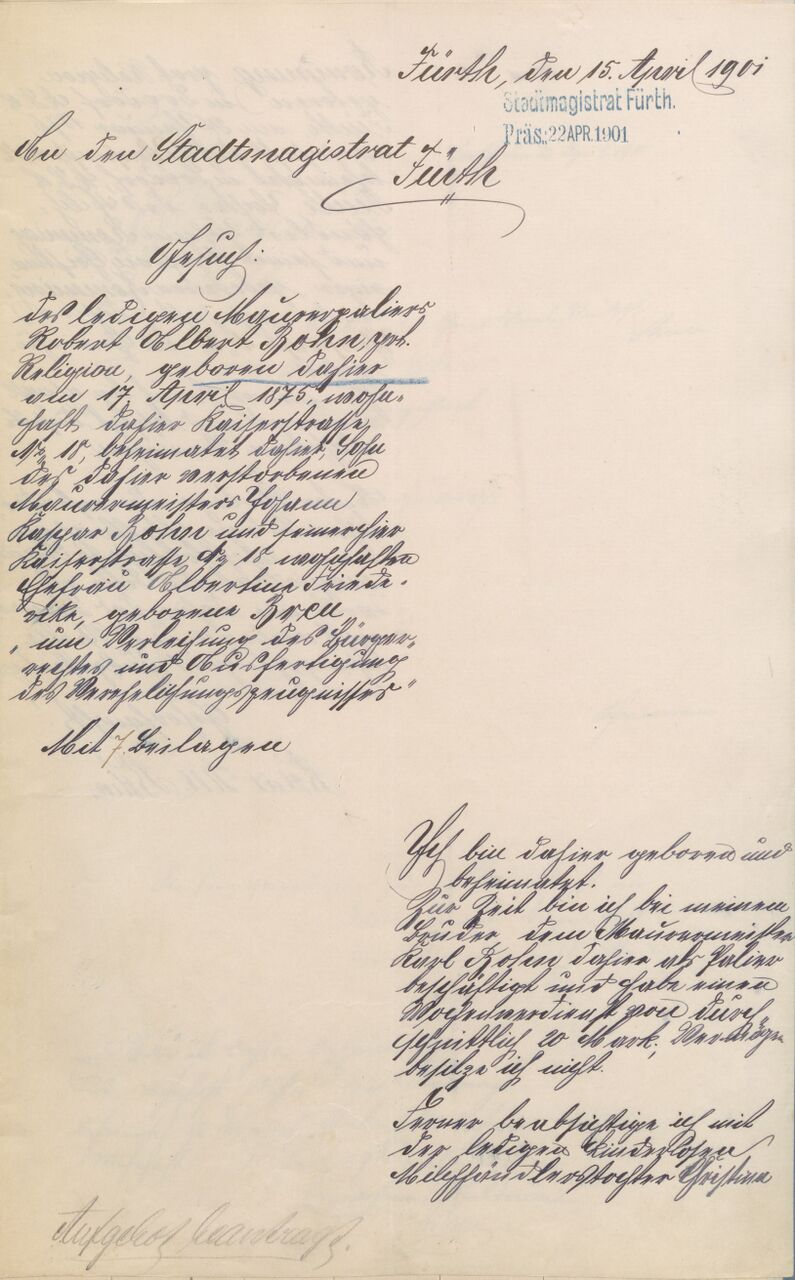 Fürth, den 15. April 1901
Stadtmagistrat Fürth.
Präs. 22 APR. 1901
An den Stadtmagistrat
Fürth
Gesuch:
des ledigen Maurerpaliers
Robert Albert Bohn, prt.
Religion, geboren dahier
am 17. April 1875, wohn-
haft dahier Kaiserstrasse
No 18, beheimatet dahier, Sohn
des dahier verstorbenen
Maurermeisters Johann
Kaspar Bohn und seiner hier
Kaiserstrasse No 18 wohnhaften
Ehefrau Albertine Friede-
rike, geborene
„um Verleihung des Bürger-
rechtes und Ausfertigung
des Verehelichungszeugnisses"
Mit 7 Beilagen
Ich bin dahier geboren und
beheimatet.
Zur Zeit bin ich bei meinem
Bruder dem Maurermeister
Karl Bohn dahier als Palier
beschäftigt und habe einen
Wochenverdienst von durch-
schnittlich 20 Mark; Vermögen
besitze ich nicht.
Ferner beabsichtige ich mit
der ledigen kinderlosen
Milchhändlerstochter Christina
Aufgebot beantragt.